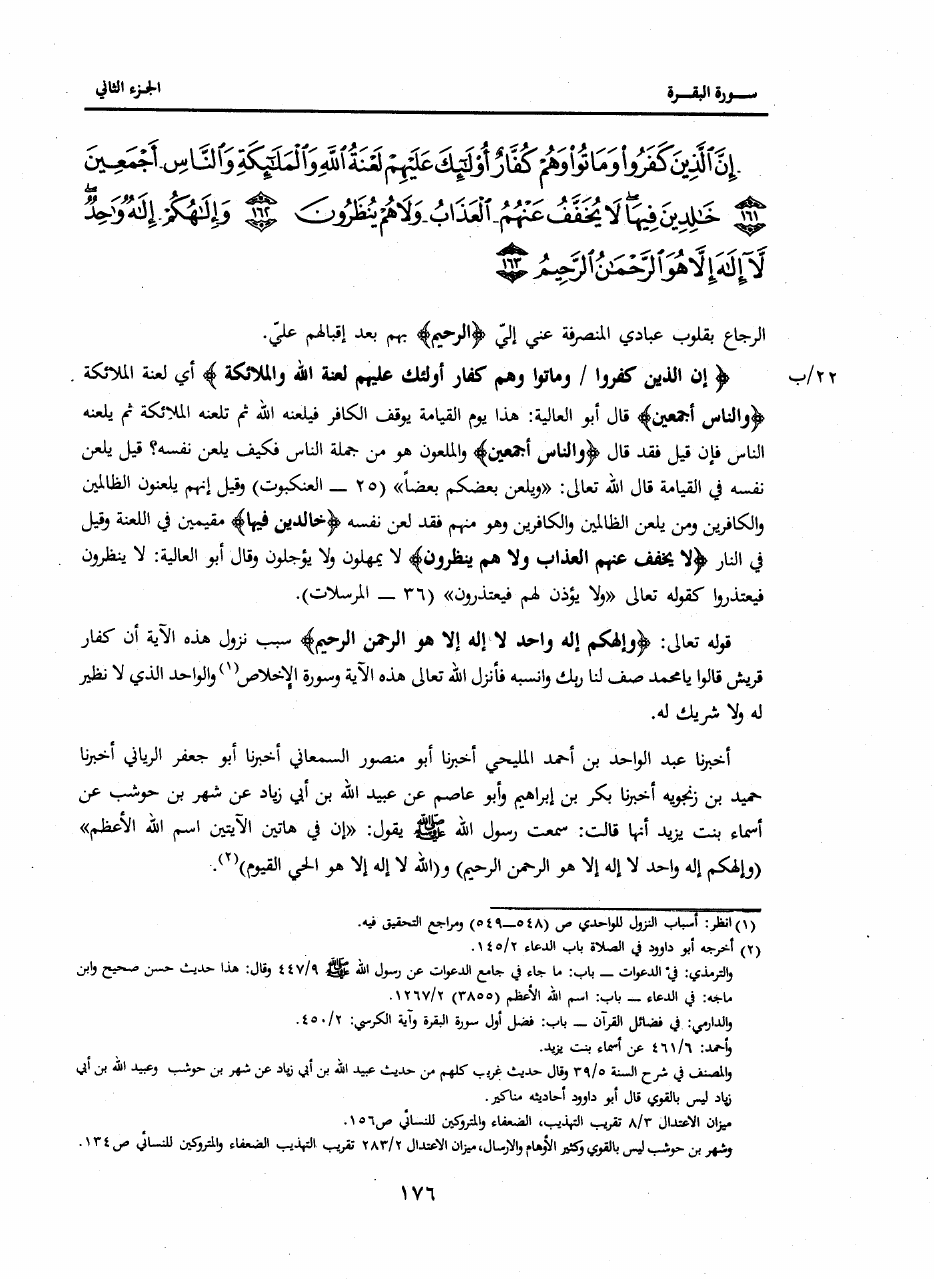 سورة البقرة الجزء الثاني
إِنَّ ٱلَّذِينَ كَفَرُوا۟ وَمَاتُوا۟ وَهُمْ كُفَّارٌ أُو۟لَـٰٓئِكَ عَلَيْهِمْ لَعْنَةُ ٱللَّهِ وَٱلْمَلَـٰٓئِكَةِ وَٱلنَّاسِ أَجْمَعِينَ
١٦١ خَـٰلِدِينَ فِيهَا ۖ لَا يُخَفَّفُ عَنْهُمُ ٱلْعَذَابُ وَلَا هُمْ يُنظَرُونَ ١٦٢ وَإِلَـٰهُكُمْ إِلَـٰهٌ وَٰحِدٌ ۖ
لَّآ إِلَـٰهَ إِلَّا هُوَ ٱلرَّحْمَـٰنُ ٱلرَّحِيمُ ١٦٣
الرجاع بقلوب عبادي المنصرفة عني إليّ ﴿الرحيم﴾ بهم بعد إقبالهم عليّ.
٢٢/ب ﴿ إن الذين كفروا / وماتوا وهم كفار أولئك عليهم لعنة الله والملائكة ﴾ أي لعنة الملائكة
﴿والناس أجمعين﴾ قال أبو العالية: هذا يوم القيامة يوقف الكافر فيلعنه الله ثم تلعنه الملائكة ثم يلعنه
الناس فإن قيل فقد قال ﴿والناس أجمعين﴾ والملعون هو من جملة الناس فكيف يلعن نفسه؟ قيل يلعن
نفسه في القيامة قال الله تعالى: «ويلعن بعضكم بعضاً» (٢٥ ــ العنكبوت) وقيل إنهم يلعنون الظالمين
والكافرين ومن يلعن الظالمين والكافرين وهو منهم فقد لعن نفسه ﴿خالدين فيها﴾ مقيمين في اللعنة وقيل
في النار ﴿لا يخفف عنهم العذاب ولا هم ينظرون﴾ لا يمهلون ولا يؤجلون وقال أبو العالية: لا ينظرون
فيعتذروا كقوله تعالى «ولا يؤذن لهم فيعتذرون» (٣٦ ــ المرسلات).
قوله تعالى: ﴿وإلهكم إله واحد لا إله إلا هو الرحمن الرحيم﴾ سبب نزول هذه الآية أن كفار
قريش قالوا يامحمد صف لنا ربك وانسبه فأنزل الله تعالى هذه الآية وسورة الإخلاص(١) والواحد الذي لا نظير
له ولا شريك له.
أخبرنا عبد الواحد بن أحمد المليحي أخبرنا أبو منصور السمعاني أخبرنا أبو جعفر الرياني أخبرنا
حميد بن زنجويه أخبرنا بكر بن إبراهيم وأبو عاصم عن عبيد الله بن أبي زياد عن شهر بن حوشب عن
أسماء بنت يزيد أنها قالت: سمعت رسول الله ﷺ يقول: «إن في هاتين الآيتين اسم الله الأعظم»
(وإلهكم إله واحد لا إله إلا هو الرحمن الرحيم) و(الله لا إله إلا هو الحي القيوم)(٢).
(١) انظر: أسباب النزول للواحدي ص (٥٤٨ــ٥٤٩) ومراجع التحقيق فيه.
(٢) أخرجه أبو داوود في الصلاة باب الدعاء ١٤٥/٢.
والترمذي: في الدعوات ــ باب: ما جاء في جامع الدعوات عن رسول الله ﷺ ٤٤٧/٩ وقال: هذا حديث حسن صحيح وابن
ماجه: في الدعاء ــ باب: اسم الله الأعظم (٣٨٥٥) ١٢٦٧/٢.
والدارمي: في فضائل القرآن ــ باب: فضل أول سورة البقرة وآية الكرسي: ٤٥٠/٢.
وأحمد: ٤٦١/٦ عن أسماء بنت يزيد.
والمصنف في شرح السنة ٣٩/٥ وقال حديث غريب كلهم من حديث عبيد الله بن أبي زياد عن شهر بن حوشب وعبيد الله بن أبي
زياد ليس بالقوي قال أبو داوود أحاديثه مناكير.
ميزان الاعتدال ٨/٣ تقريب التهذيب، الضعفاء والمتروكين للنسائي ص١٥٦.
وشهر بن حوشب ليس بالقوي وكثير الأوهام والارسال، ميزان الاعتدال ٢٨٣/٢ تقريب التهذيب الضعفاء والمتروكين للنسائي ص١٣٤.
١٧٦